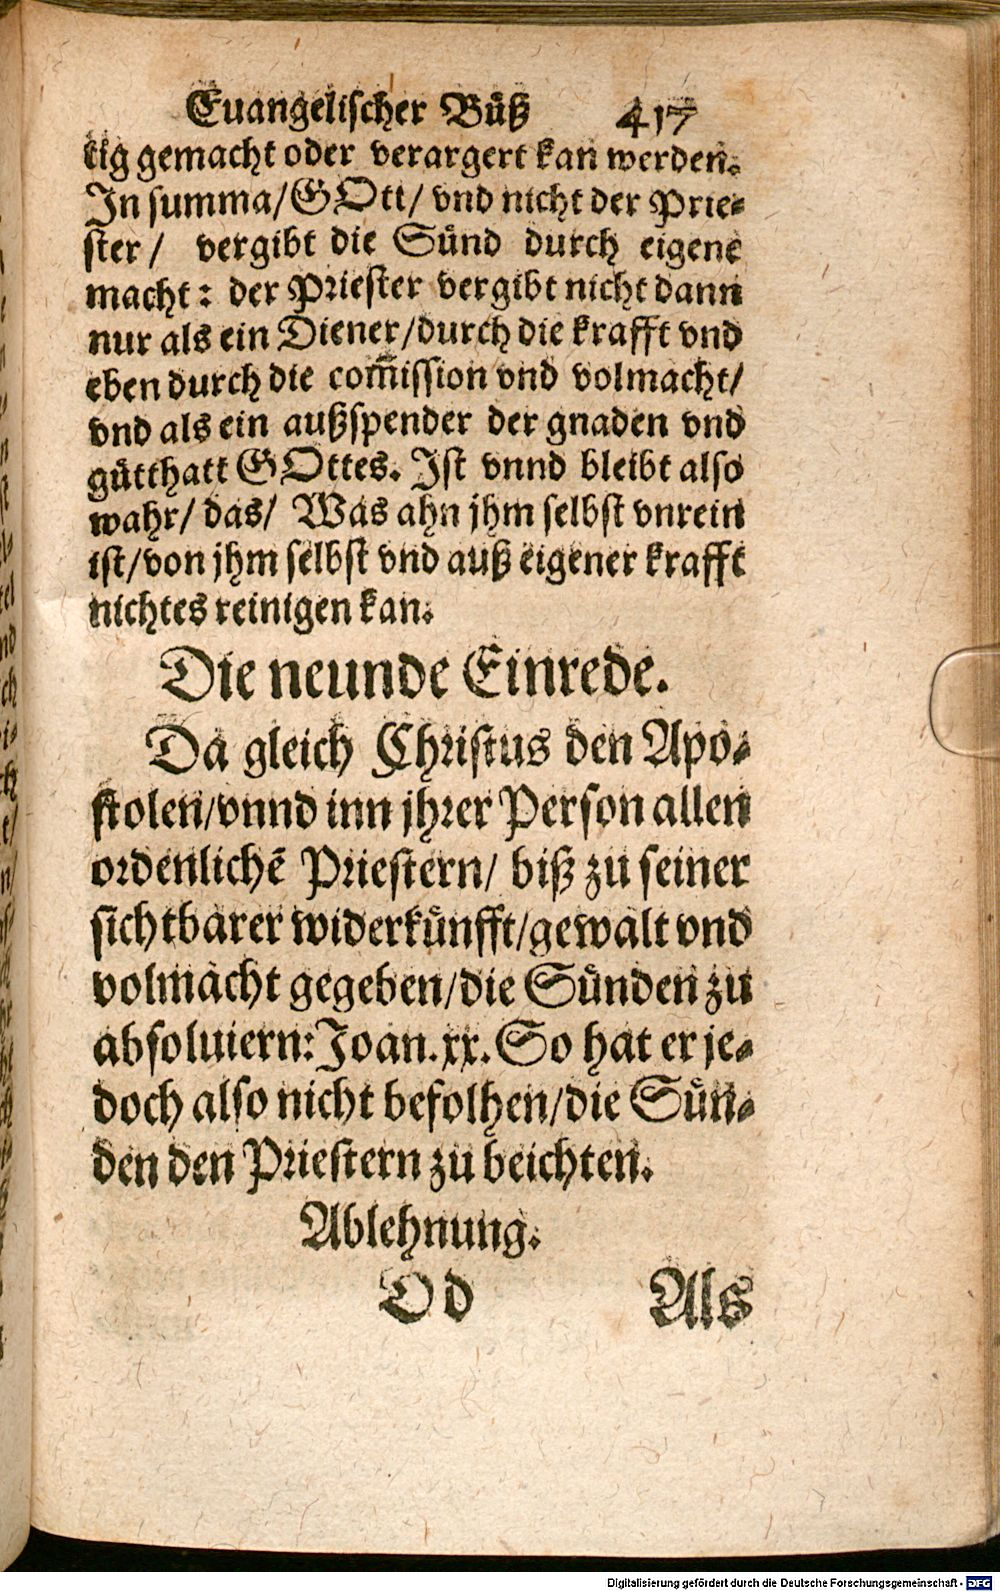 Euangelischer Bůß 417
tig gemacht oder verargert kan werden.
In summa/ GOtt/ vnd nicht der Prie-
ster/ vergibt die Sünd durch eigene
macht: der Priester vergibt nicht dann
nur als ein Diener/ durch die krafft vnd
eben durch die com̃ission vnd volmacht/
vnd als ein außspender der gnaden vnd
gůtthatt GOttes. Ist vnnd bleibt also
wahr/ das/ Was ahn jhm selbst vnrein
ist/ von jhm selbst vnd auß eigener krafft
nichtes reinigen kan.
Die neunde Einrede.
Da gleich Christus den Apo-
stolen/ vnnd inn jhrer Person allen
ordenlichẽ Priestern/ biß zu seiner
sichtbarer widerkůnfft/ gewalt vnd
volmacht gegeben/ die Sünden zu
absoluiern: Joan. xx. So hat er je-
doch also nicht befolhen/ die Sün-
den den Priestern zu beichten.
Ablehnung.
Dd Als
Digitalisierung gefördert durch die Deutsche Forschungsgemeinschaft - DFG